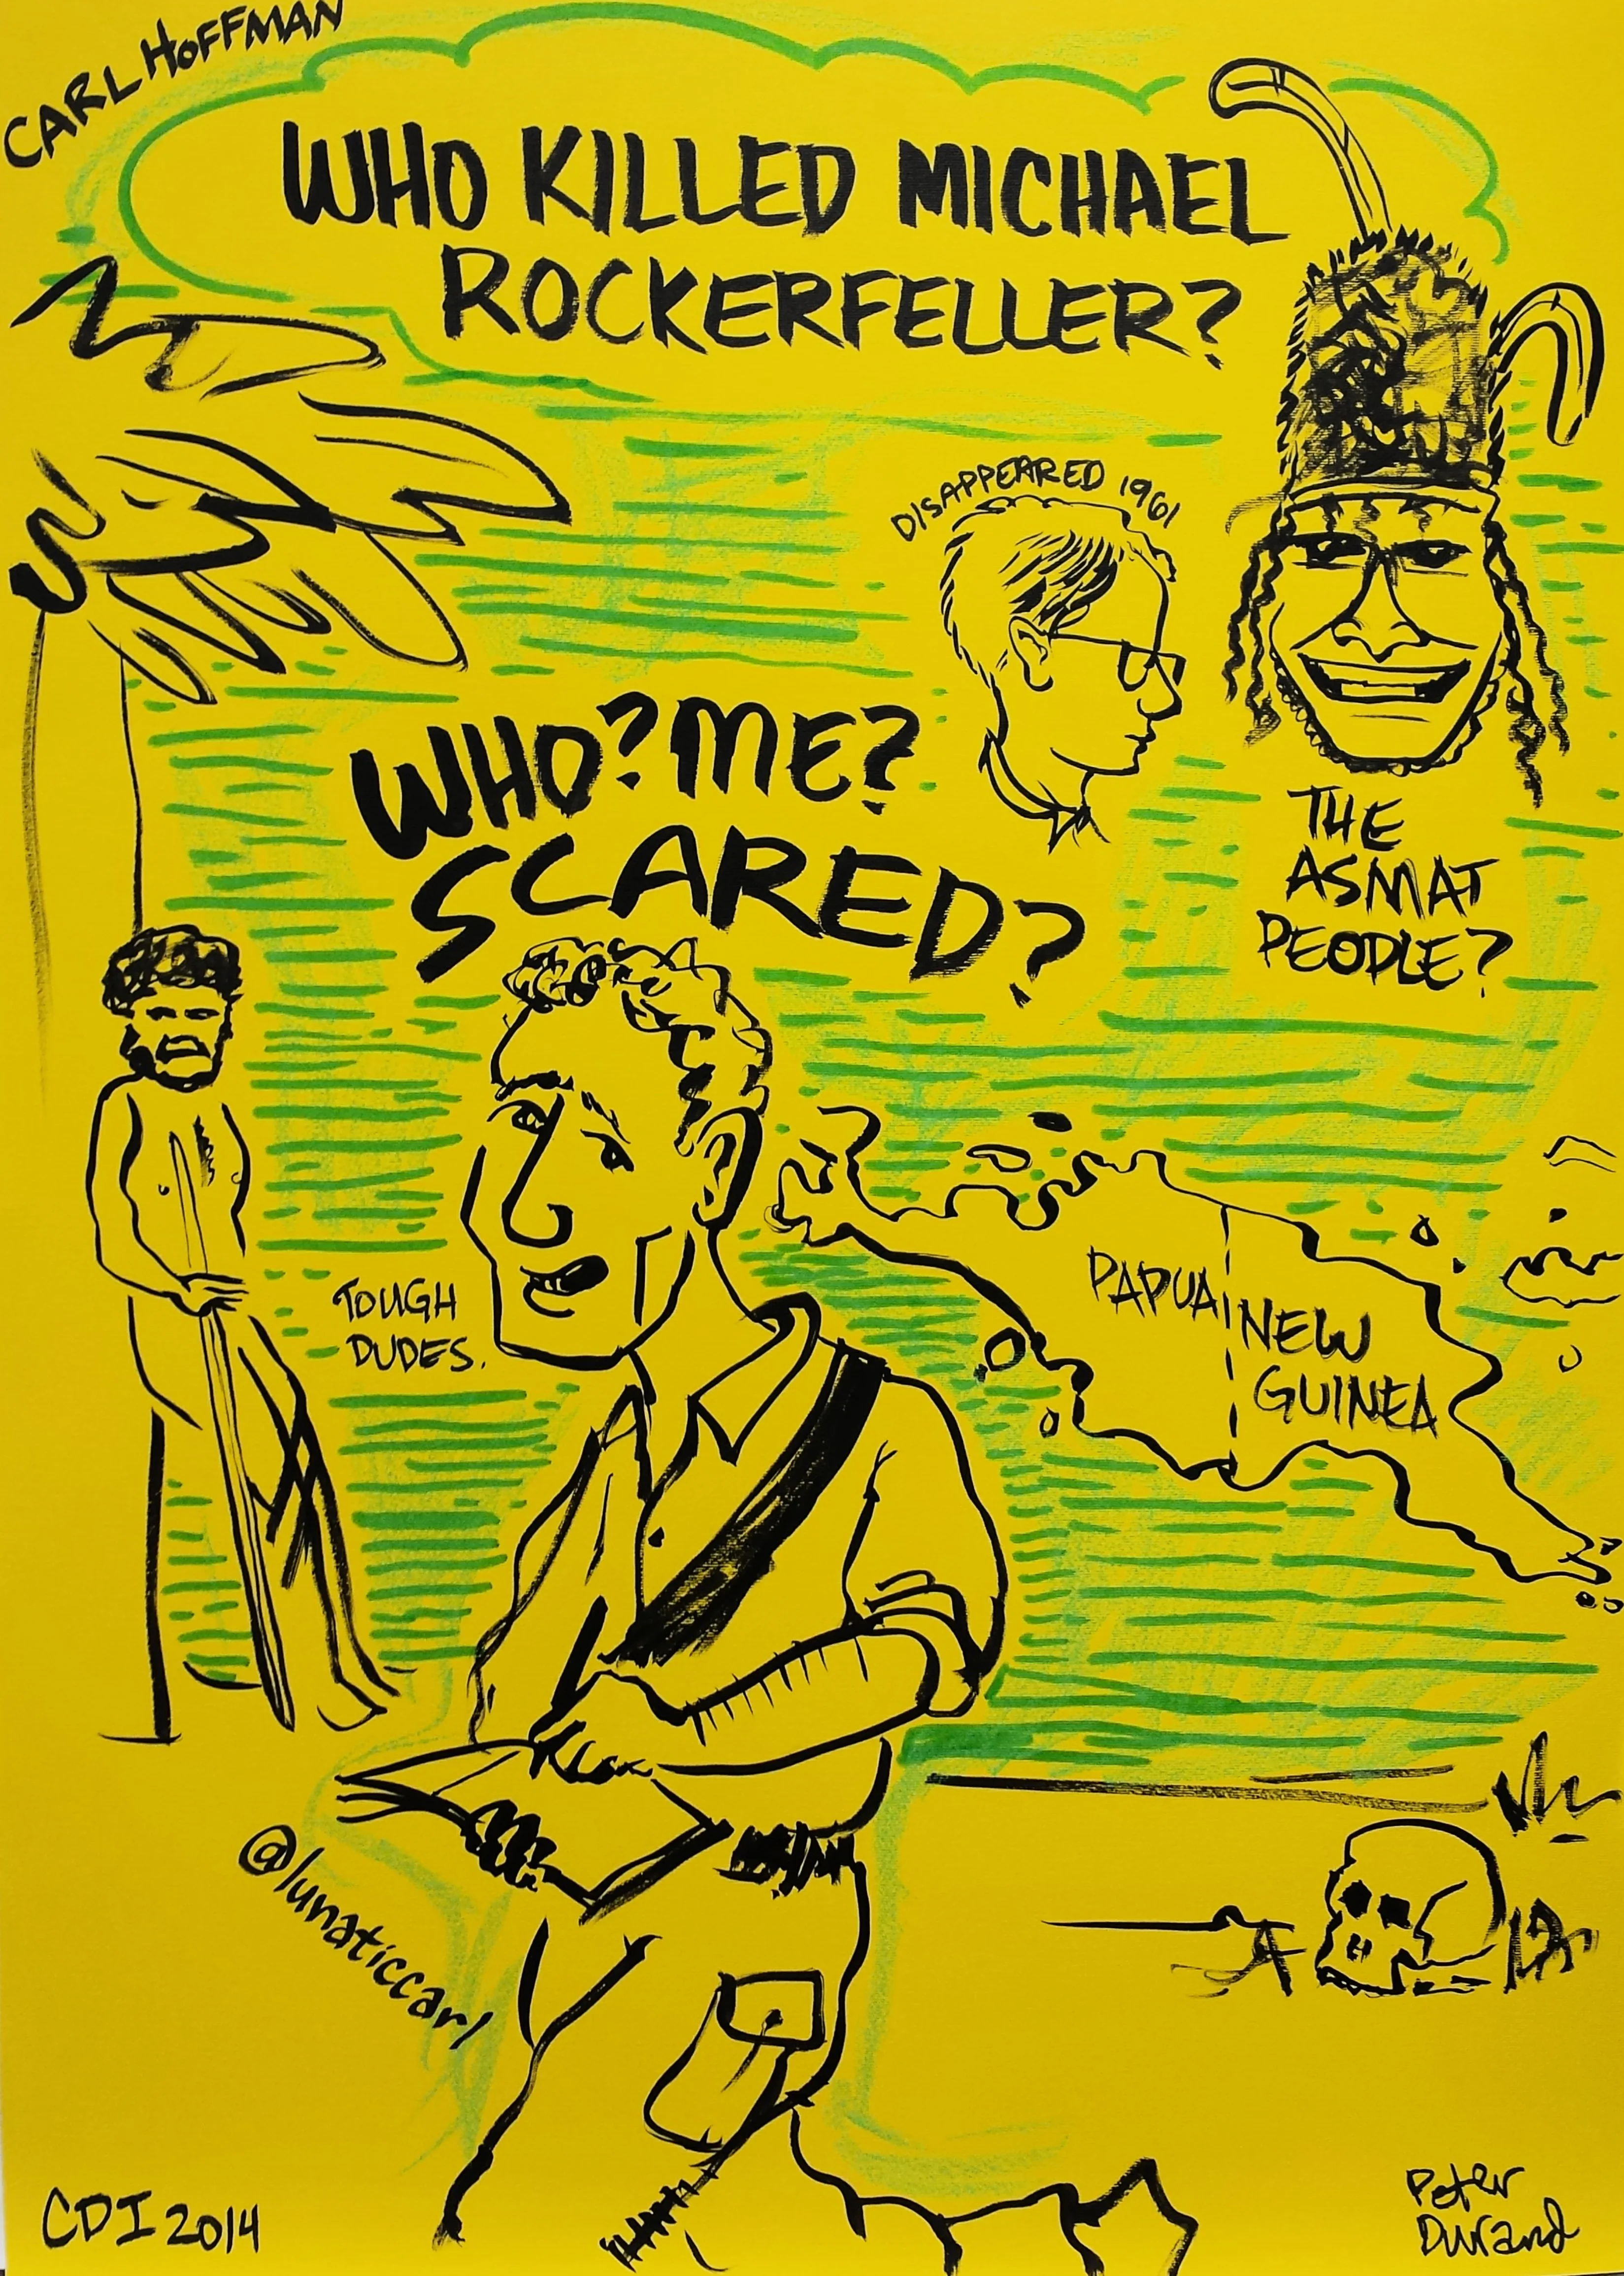 CARL HOFFMAN
WHO KILLED MICHAEL
ROCKERFELLER?
DISAPPEARED 1961
THE
ASMAT
PEOPLE?
WHO? ME?
SCARED?
TOUGH
DUDES.
PAPUA NEW
GUINEA
@lunaticcarl
CDI 2014
Peter
Durand